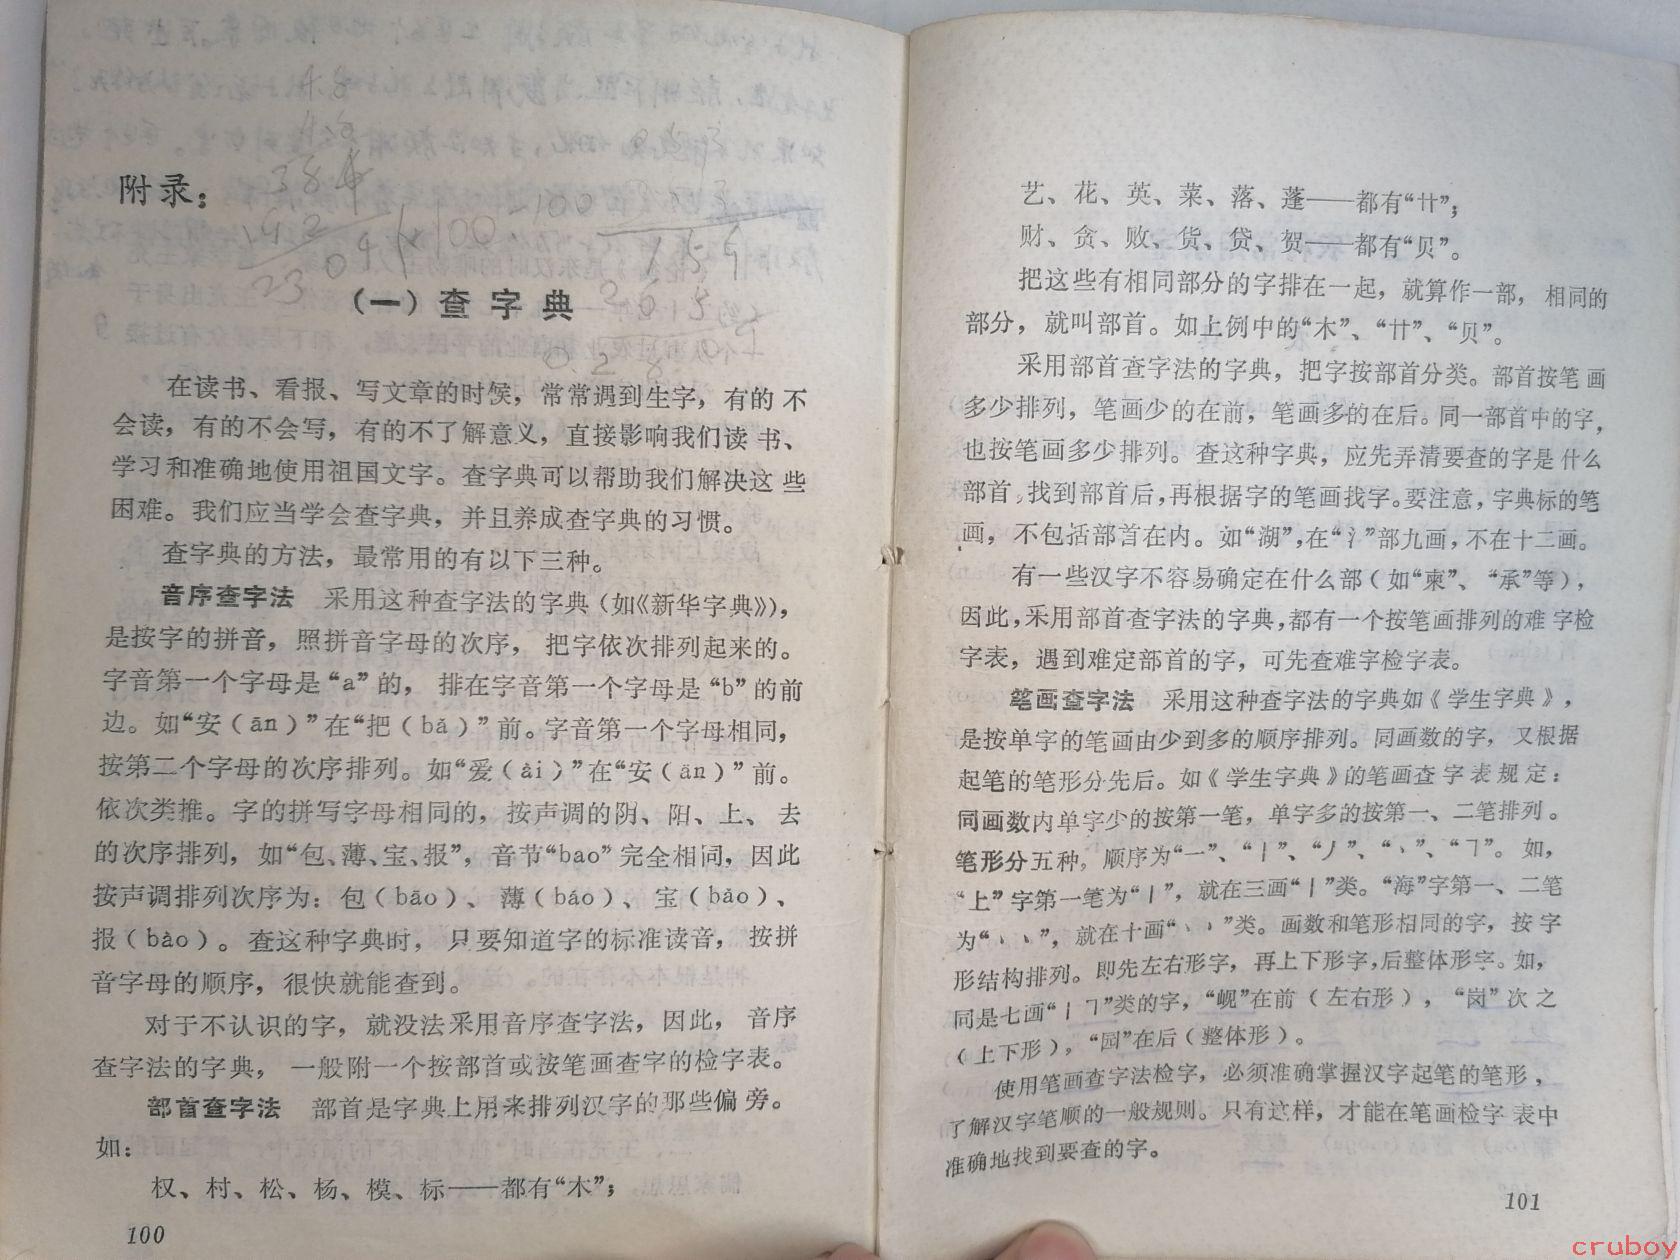 附录：
（一）查字典
在读书、看报、写文章的时候，常常遇到生字，有的不
会读，有的不会写，有的不了解意义，直接影响我们读书、
学习和准确地使用祖国文字。查字典可以帮助我们解决这些
困难。我们应当学会查字典，并且养成查字典的习惯。
查字典的方法，最常用的有以下三种。
音序查字法　采用这种查字法的字典（如《新华字典》），
是按字的拼音，照拼音字母的次序，把字依次排列起来的。
字音第一个字母是“a”的，排在字音第一个字母是“b”的前
边。如“安（ān）”在“把（bǎ）”前。字音第一个字母相同，
按第二个字母的次序排列。如“爱（ài）”在“安（ān）”前。
依次类推。字的拼写字母相同的，按声调的阴、阳、上、去
的次序排列，如“包、薄、宝、报”，音节“bao”完全相同，因此
按声调排列次序为：包（bāo）、薄（báo）、宝（bǎo）、
报（bào）。查这种字典时，只要知道字的标准读音，按拼
音字母的顺序，很快就能查到。
对于不认识的字，就没法采用音序查字法，因此，音序
查字法的字典，一般附一个按部首或按笔画查字的检字表。
部首查字法　部首是字典上用来排列汉字的那些偏旁。
如：
权、村、松、杨、模、标——都有“木”；
100
艺、花、英、菜、落、蓬——都有“艹”；
财、贪、败、货、贷、贺——都有“贝”。
把这些有相同部分的字排在一起，就算作一部，相同的
部分，就叫部首。如上例中的“木”、“艹”、“贝”。
采用部首查字法的字典，把字按部首分类。部首按笔画
多少排列，笔画少的在前，笔画多的在后。同一部首中的字，
也按笔画多少排列。查这种字典，应先弄清要查的字是什么
部首，找到部首后，再根据字的笔画找字。要注意，字典标的笔
画，不包括部首在内。如“湖”，在“氵”部九画，不在十二画。
有一些汉字不容易确定在什么部（如“柬”、“承”等），
因此，采用部首查字法的字典，都有一个按笔画排列的难字检
字表，遇到难定部首的字，可先查难字检字表。
笔画查字法　采用这种查字法的字典如《学生字典》，
是按单字的笔画由少到多的顺序排列。同画数的字，又根据
起笔的笔形分先后。如《学生字典》的笔画查字表规定：
同画数内单字少的按第一笔，单字多的按第一、二笔排列。
笔形分五种，顺序为“一”、“丨”、“丿”、“丶”、“㇕”。如，
“上”字第一笔为“丨”，就在三画“丨”类。“海”字第一、二笔
为“丶丶”，就在十画“丶丶”类。画数和笔形相同的字，按字
形结构排列。即先左右形字，再上下形字，后整体形字。如，
同是七画“丨㇕”类的字，“岘”在前（左右形），“岗”次之
（上下形），“园”在后（整体形）。
使用笔画查字法检字，必须准确掌握汉字起笔的笔形，
了解汉字笔顺的一般规则。只有这样，才能在笔画检字表中
准确地找到要查的字。
101
cruboy